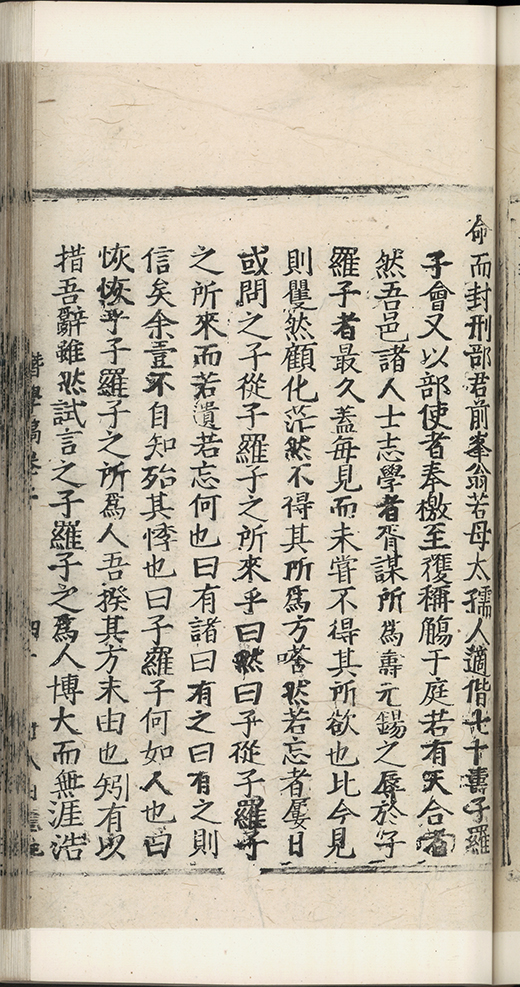 命而封刑部君前峯翁若母太孺人適偕七十壽子羅
子會又以部使者奉檄至獲稱觴于庭若有天合者
然吾邑諸人士志學者胥謀所為壽元錫之辱於子
羅子者最久蓋每見而未嘗不得其所欲也比今見
則瞿然顧化茫然不得其所為方嗒然若忘者屢日
或問之子從子羅子之所來乎曰然曰子從子羅子
之所來而若遺若忘何也曰有諸曰有之曰有之則
信矣余壹不自知殆其悸也曰子羅子何如人也曰
恢恢乎子羅子之所為人吾揆其方末由也矧有以
措吾辭雖然試言之子羅子之為人博大而無涯浩
潛學稿卷二